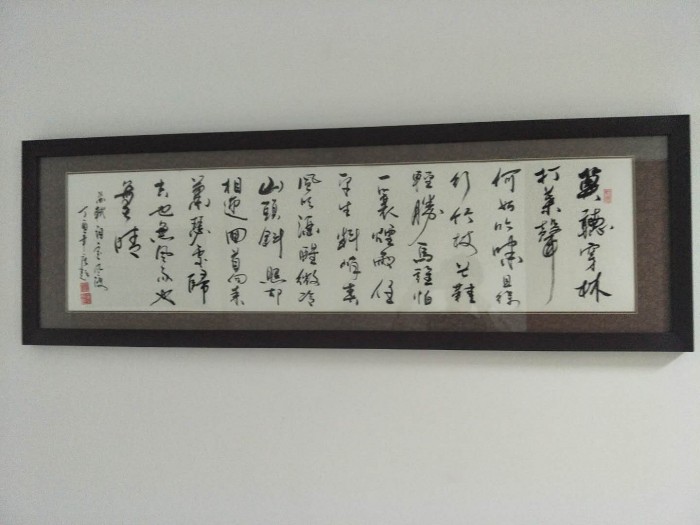 莫聽穿林
打葉聲
何妨吟嘯且徐
行竹杖芒鞋
輕勝馬誰怕
一蓑煙雨任
平生料峭春
風吹酒醒微冷
山頭斜照却
相迎回首向来
蕭瑟處歸
去也無風雨也
無晴
蘇軾詞定風波
丁酉年